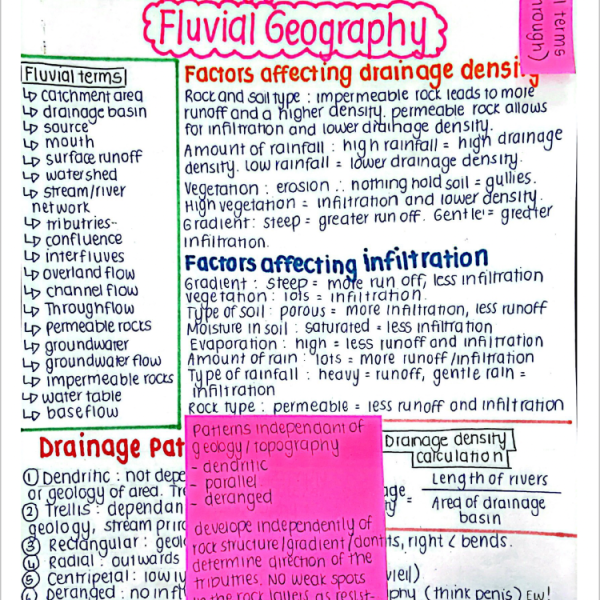 Fluvial Geography
terms
through)
Fluvial terms
↳ catchment area
↳ drainage basin
↳ source
↳ mouth
↳ surface runoff
↳ watershed
↳ stream/river
network
↳ tributries
↳ confluence
↳ interfluves
↳ overland flow
↳ channel flow
↳ Throughflow
↳ permeable rocks
↳ groundwater
↳ groundwater flow
↳ impermeable rocks
↳ water table
↳ baseflow
Factors affecting drainage density
Rock and soil type : impermeable rock leads to more
runoff and a higher density. permeable rock allows
for infiltration and lower drainage density.
Amount of rainfall : high rainfall = high drainage
density. low rainfall = lower drainage density.
Vegetation : erosion ∴ nothing hold soil = gullies.
High vegetation = infiltration and lower density.
Gradient : steep = greater run off. Gentle = greater
infiltration.
Factors affecting infiltration
Gradient : steep = more run off, less infiltration
vegetation : lots = infiltration.
Type of soil : porous = more infiltration, less runoff
Moisture in soil : saturated = less infiltration
Evaporation : high = less runoff and infiltration
Amount of rain : lots = more runoff/infiltration
Type of rainfall : heavy = runoff, gentle rain =
infiltration
Rock type : permeable = less runoff and infiltration
Drainage
① Dendritic : not
or geology of area.
② Trellis :
geology, stream
③ Rectangular :
④ Radial : outwards
⑤ Centripetal :
⑥ Deranged : no
Patterns independant of
geology/topography
- dendritic
- parallel
- deranged
develope independently of
rock structure/gradient/
determine direction of the
tributries. No weak spots
in the rock layers as
Drainage density
calculation
= Length of rivers
Area of drainage
basin
right < bends.
(think penis) Ew!